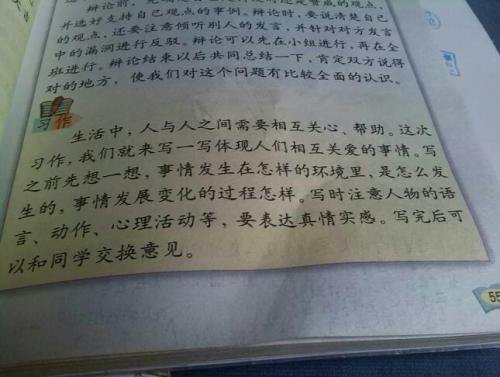 并选好支持自己观点的事例。辩论时，要说清楚自己
的观点，还要注意倾听别人的发言，并针对对方发言
中的漏洞进行反驳。辩论可以先在小组进行，再在全
班进行。辩论结束以后共同总结一下，肯定双方说得
对的地方，使我们对这个问题有比较全面的认识。
习作
生活中，人与人之间需要相互关心、帮助。这次
习作，我们就来写一写体现人们相互关爱的事情。写
之前先想一想，事情发生在怎样的环境里，是怎么发
生的，事情发展变化的过程怎样。写时注意人物的语
言、动作、心理活动等，要表达真情实感。写完后可
以和同学交换意见。
55